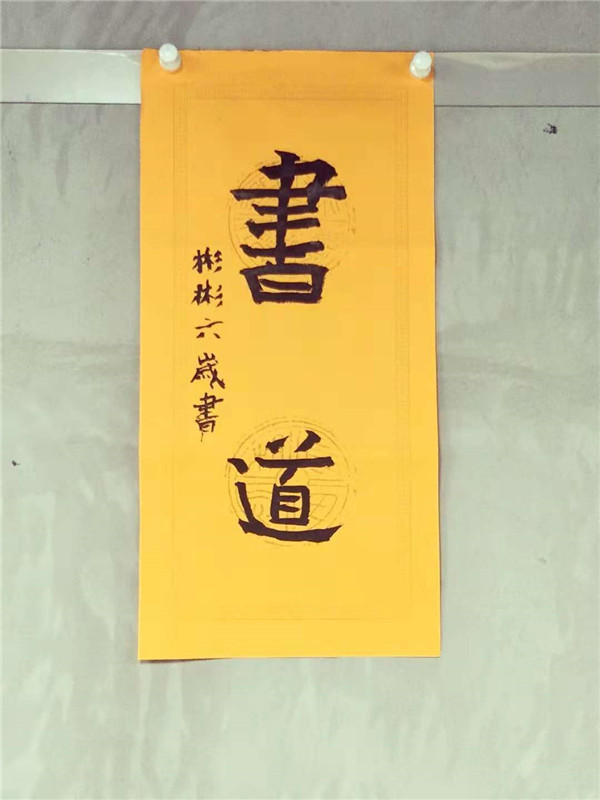 書道
彬彬六歲書